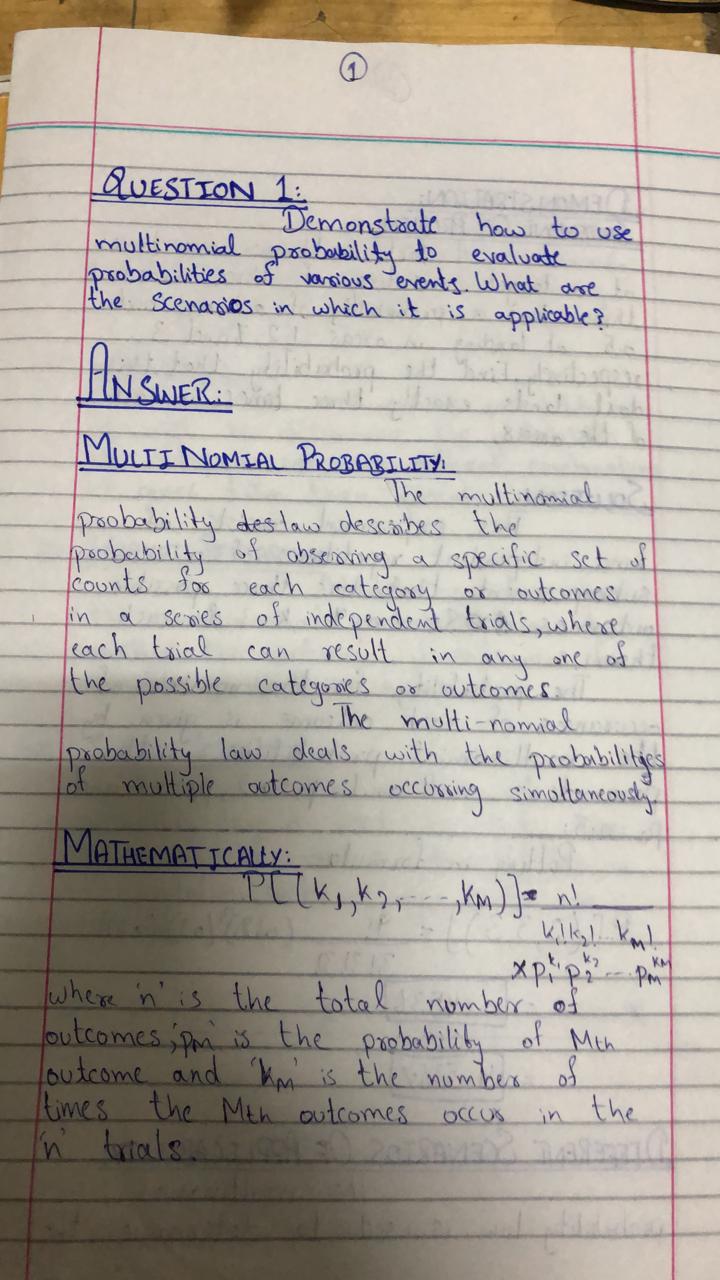 1
QUESTION 1:
Demonstrate how to use
multinomial probability to evaluate
probabilities of various events. What are
the scenarios in which it is applicable?
ANSWER:
MULTINOMIAL PROBABILITY:
The multinomial
probability des law describes the
probability of observing a specific set of
counts for each category or outcomes
in a series of independent trials, where
each trial can result in any one of
the possible categories or outcomes.
The multi-nomial
probability law deals with the probabilities
of multiple outcomes occurring simultaneously.
MATHEMATICALLY:
P[(k₁,k₂,----,kM)] = n!
k₁!k₂! kM!
×p₁^k₁ p₂^k₂ ---- pM^kM
where 'n' is the total number of
outcomes; 'pM' is the probability of Mth
outcome and 'kM' is the number of
times the Mth outcomes occur in the
'n' trials.